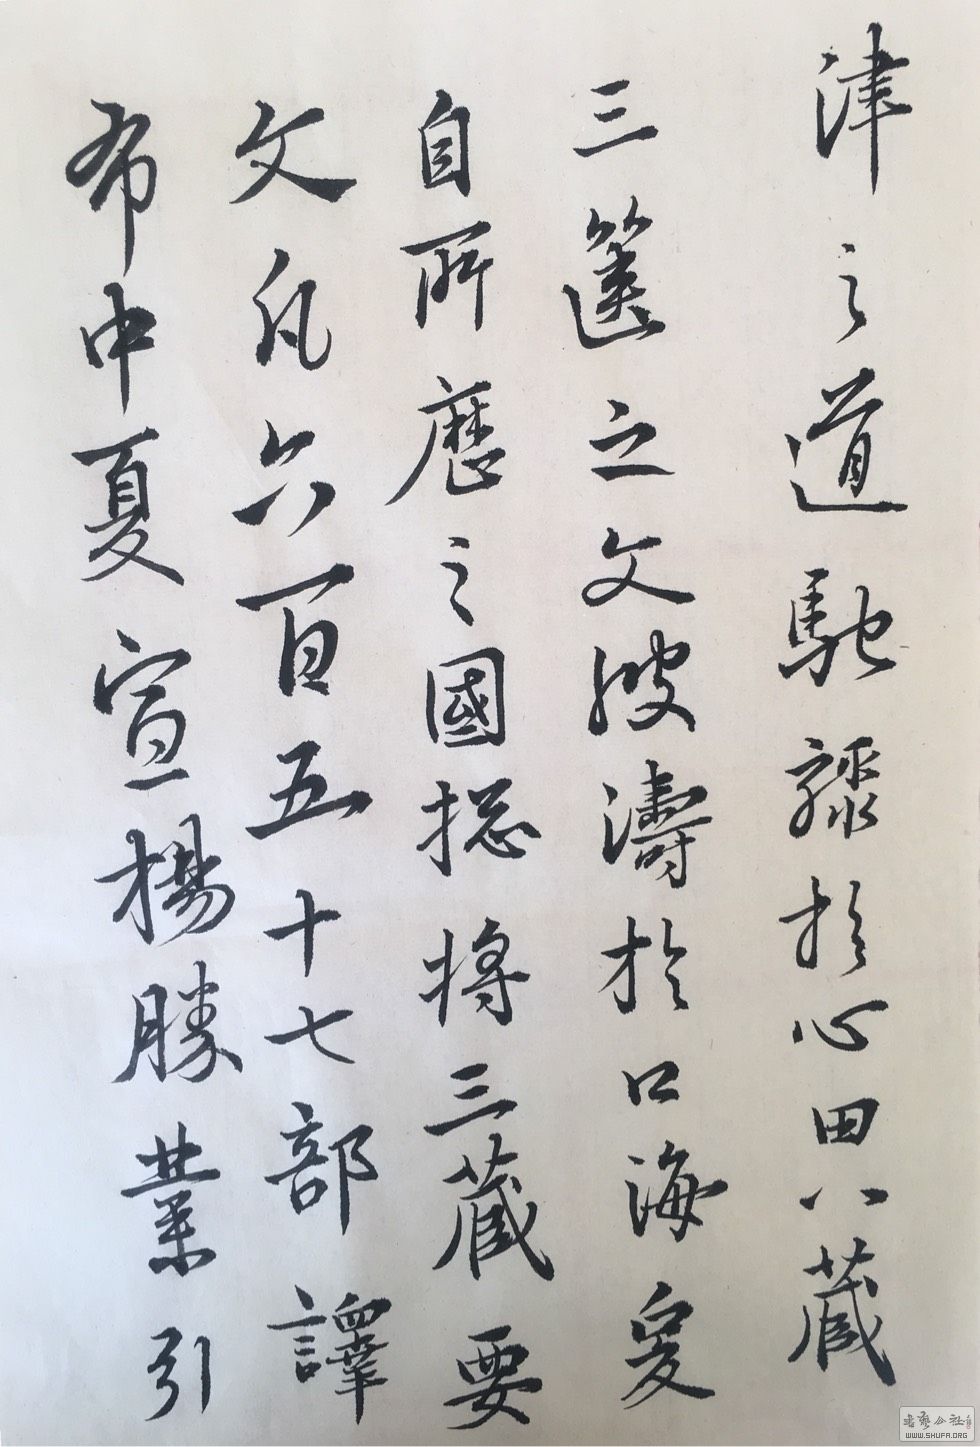 津之道馳驟於心田八藏
三篋之文波濤於口海爰
自所歷之國揔將三藏要
文凡六百五十七部譯
布中夏宣楊勝業引
書藝公社
WWW.SHUFA.ORG